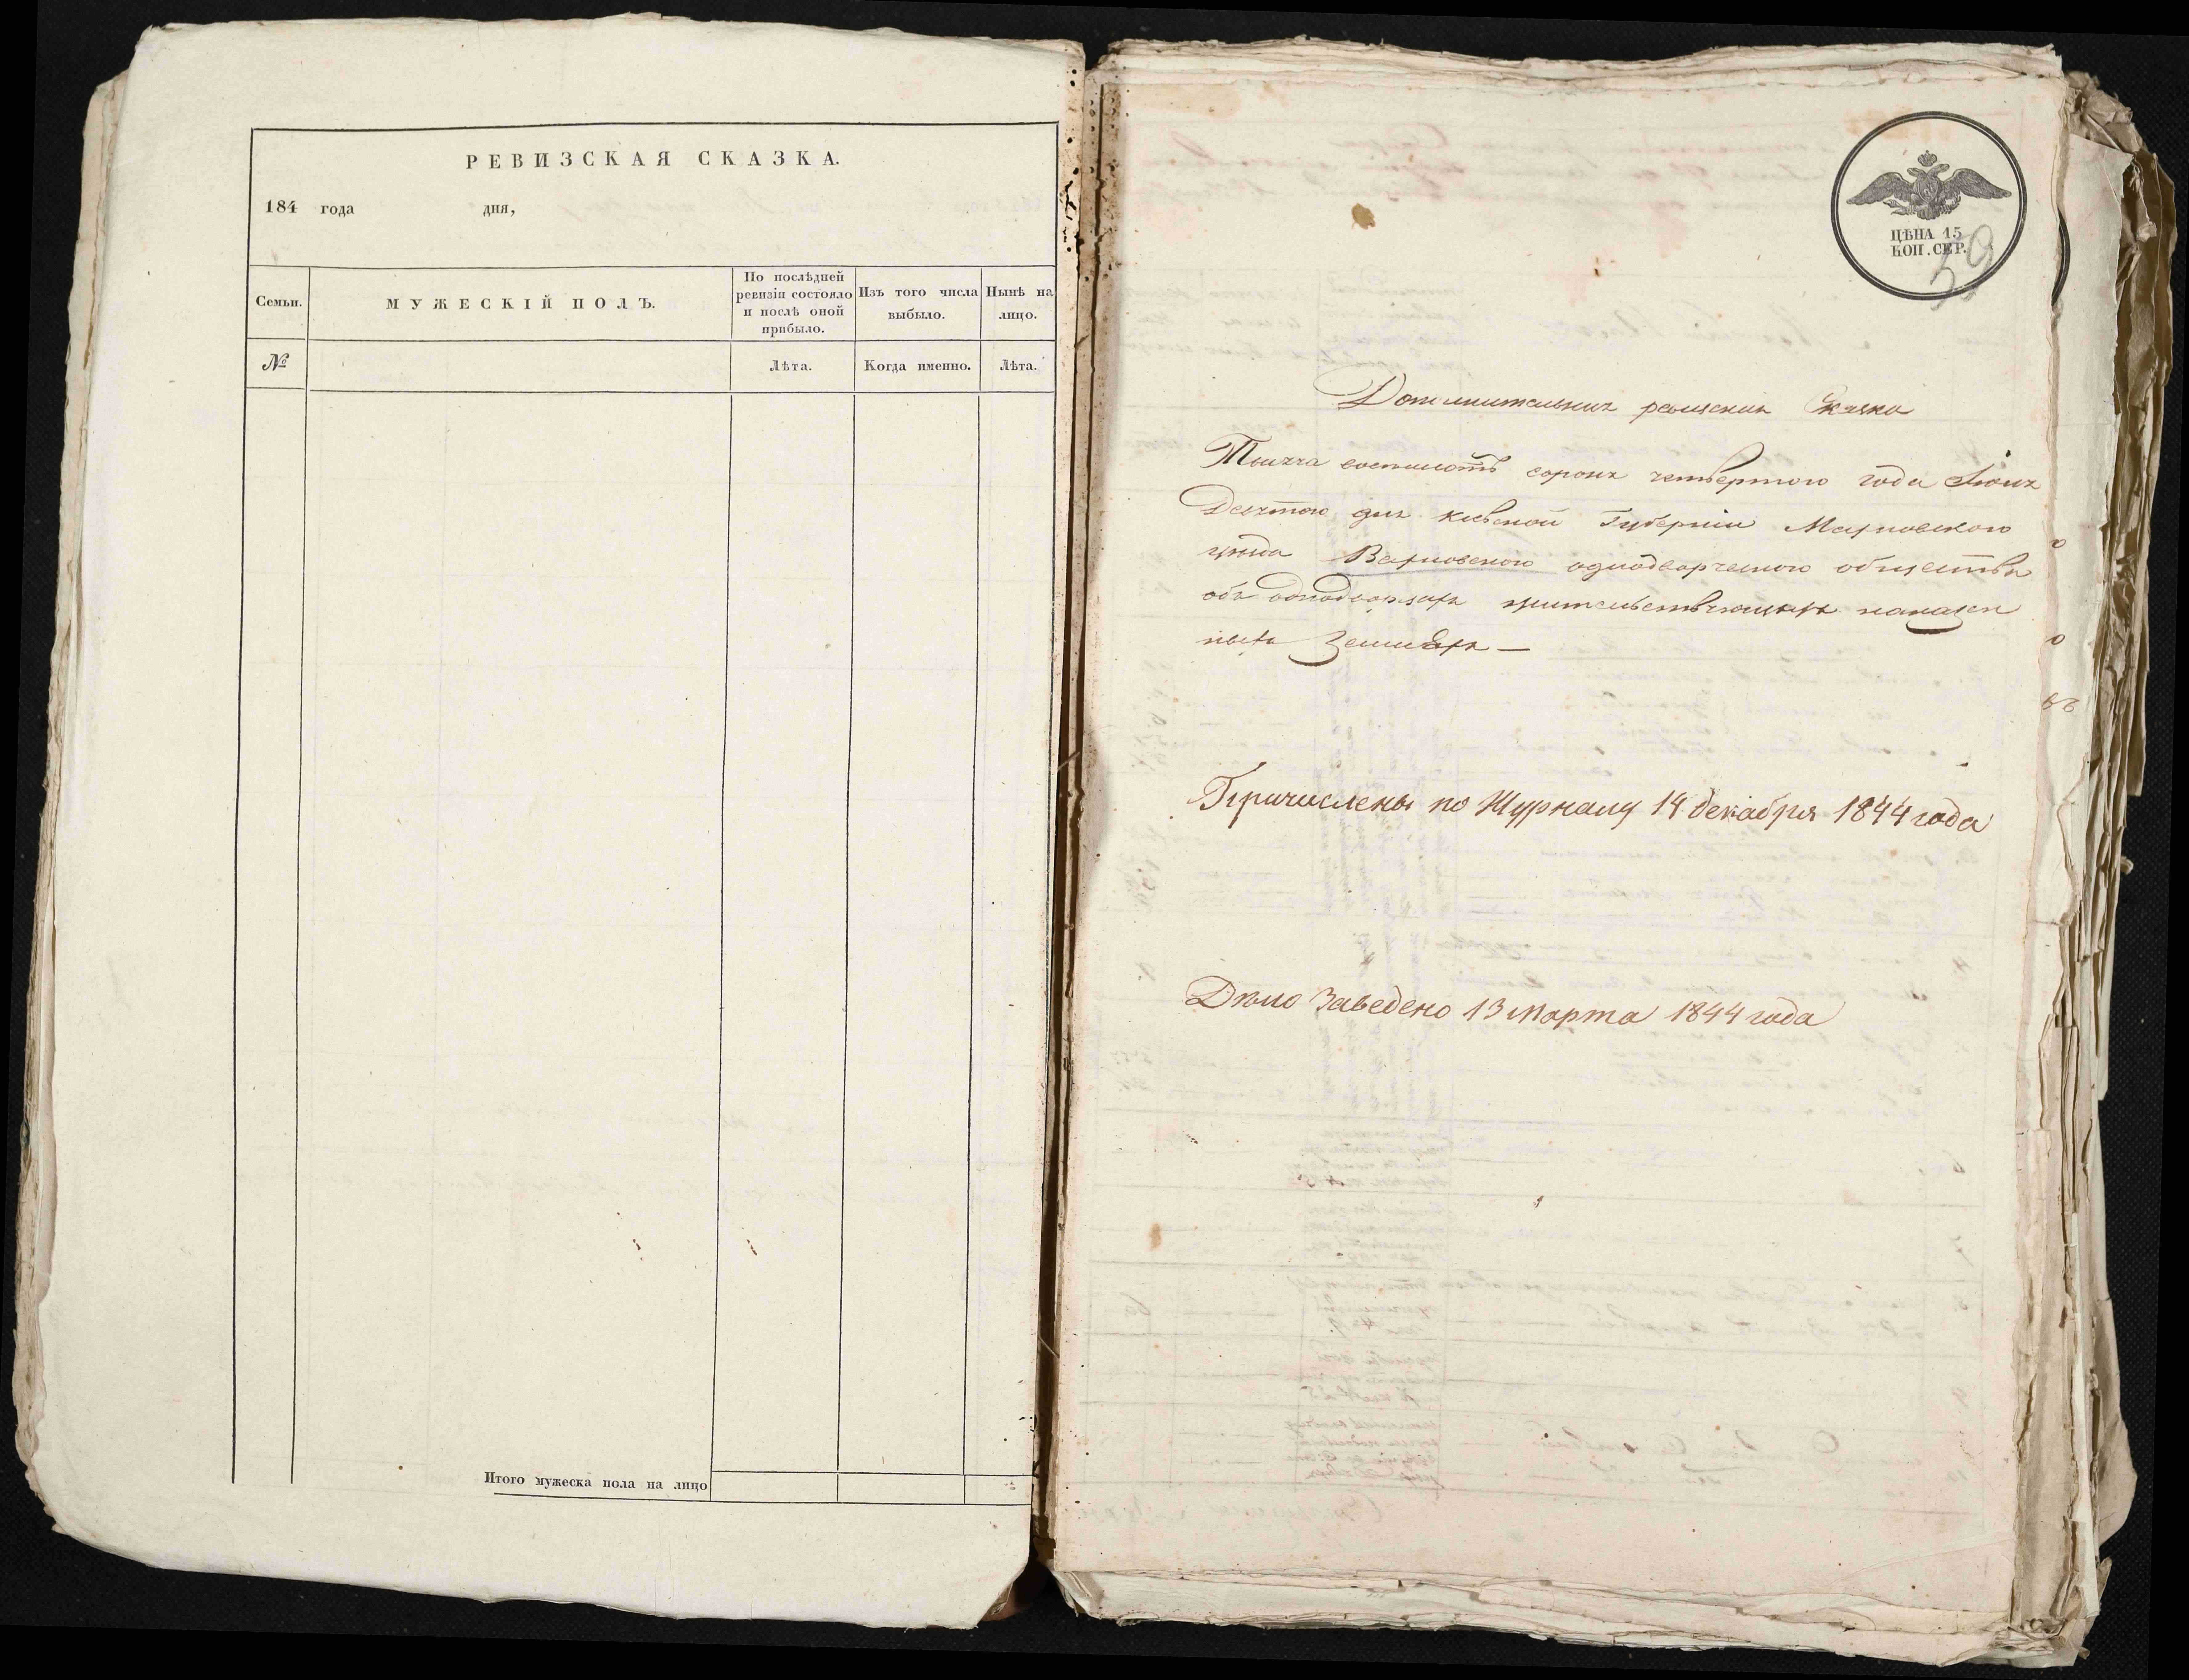 РЕВИЗСКАЯ СКАЗКА.
184 года дня,
Семьи.
МУЖЕСКІЙ ПОЛЪ.
По послѣдней
ревизіи состояло
и послѣ оной
прибыло.
Изъ того числа
выбыло.
Нынѣ на
лицо.
№
Лѣта.
Когда именно.
Лѣта.
Итого мужеска пола на лицо
ЦѢНА 15
КОП. СЕР.
59
Дополнительная ревизская Сказка
Тысяча восемьсотъ сорокъ четвертого года Іюля
Десятого дня Кіевской Губерніи Махновского
уѣзда Вахновского однодворческого общества
объ однодворцахъ жительствующихъ на казен
ныхъ Земляхъ —
Причислены по Журналу 14 декабря 1844 года
Дѣло Заведено 13 марта 1844 года